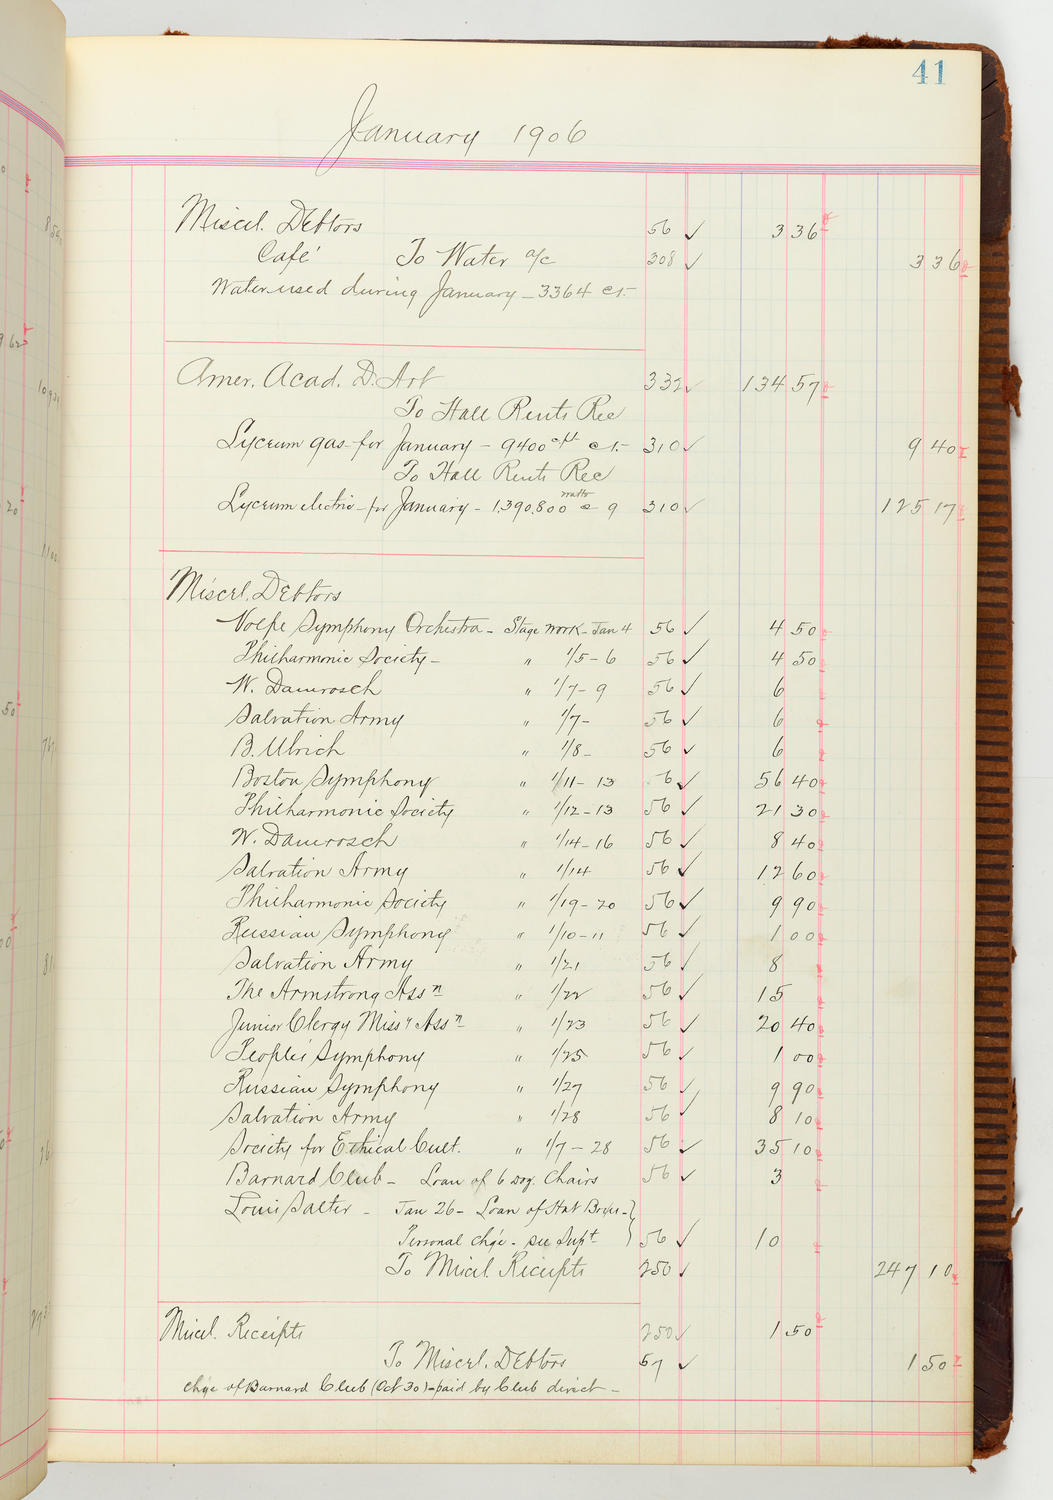 41
January 1906
Miscel. Debtors 56 ✓ 3 36
Café To Water a/c 308 ✓ 3 36
Water used during January - 3364 ct.
Amer. Acad. D. Art 332 ✓ 134 57
To Hall Rents Rec
Lyceum gas for January - 9400 cft ct. 310 ✓ 9 40
To Hall Rents Rec
Lyceum electric - for January - 1,390,800 watts @ 9 310 ✓ 125 17
Miscel. Debtors
Volpe Symphony Orchestra - Stage Work - Jan 4 56 ✓ 4 50
Philharmonic Society - " 1/5 - 6 56 ✓ 4 50
W. Damrosch " 1/7 - 9 56 ✓ 6
Salvation Army " 1/7 - 56 ✓ 6
B. Ulrich " 1/8 - 56 ✓ 6
Boston Symphony " 1/11 - 13 56 ✓ 56 40
Philharmonic Society " 1/12 - 13 56 ✓ 21 30
W. Damrosch " 1/14 - 16 56 ✓ 8 40
Salvation Army " 1/14 56 ✓ 12 60
Philharmonic Society " 1/19 - 20 56 ✓ 9 90
Russian Symphony " 1/10 - 11 56 ✓ 1 00
Salvation Army " 1/21 56 ✓ 8
The Armstrong Assn " 1/22 56 ✓ 15
Junior Clergy Missy Assn " 1/23 56 ✓ 20 40
Peoples Symphony " 1/25 56 ✓ 1 00
Russian Symphony " 1/27 56 ✓ 9 90
Salvation Army " 1/28 56 ✓ 8 10
Society for Ethical Cult. " 1/7 - 28 56 ✓ 35 10
Barnard Club - Loan of 6 doz. Chairs 56 ✓ 3
Louis Salter - Jan 26 - Loan of Hat Boxes -
Personal chge - see Supt 56 ✓ 10
To Miscl. Receipts 250 ✓ 247 10
Miscl. Receipts 250 ✓ 1 50
To Miscel. Debtors 57 ✓ 1 50
chge of Barnard Club (Oct 30) - paid by Club direct -